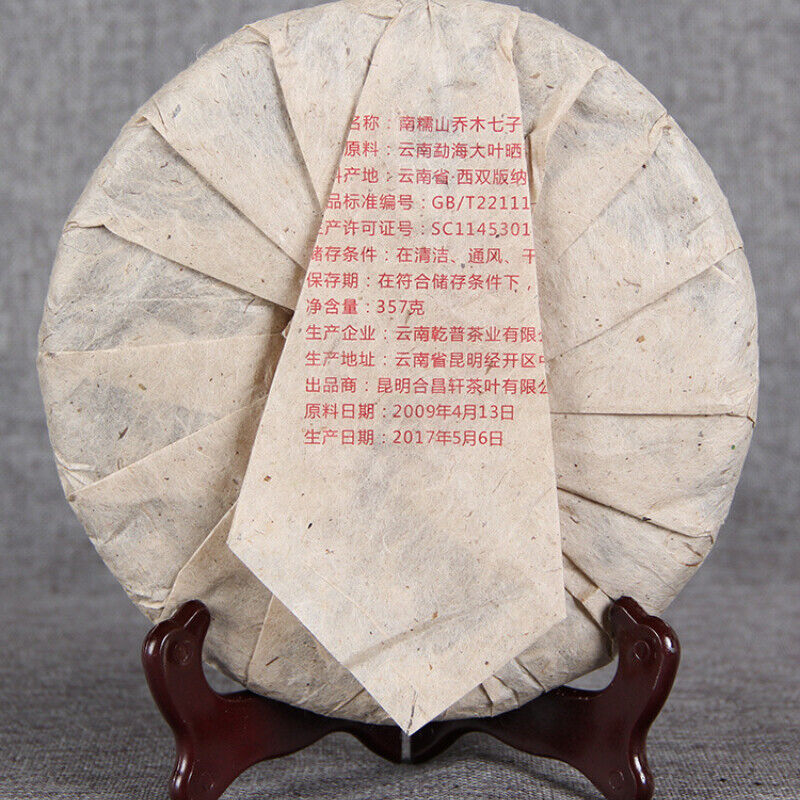 名称：南糯山乔木七子
原料：云南勐海大叶晒
产地：云南省 西双版纳
品标准编号：GB/T22111-
生产许可证号：SC1145301
储存条件：在清洁、通风、干
保存期：在符合储存条件下，
净含量：357克
生产企业：云南乾普茶业有限公
生产地址：云南省昆明经开区
出品商：昆明合昌轩茶叶有限公
原料日期：2009年4月13日
生产日期：2017年5月6日